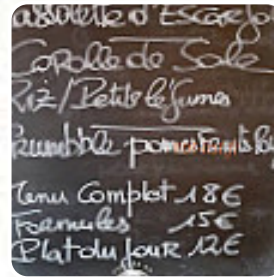 assolette d'Escargo
Corolle de Sole
Riz/Petits légumes
Crumbble pommes
Menu Complet 18€
Formules 15€
Plat du jour 12€